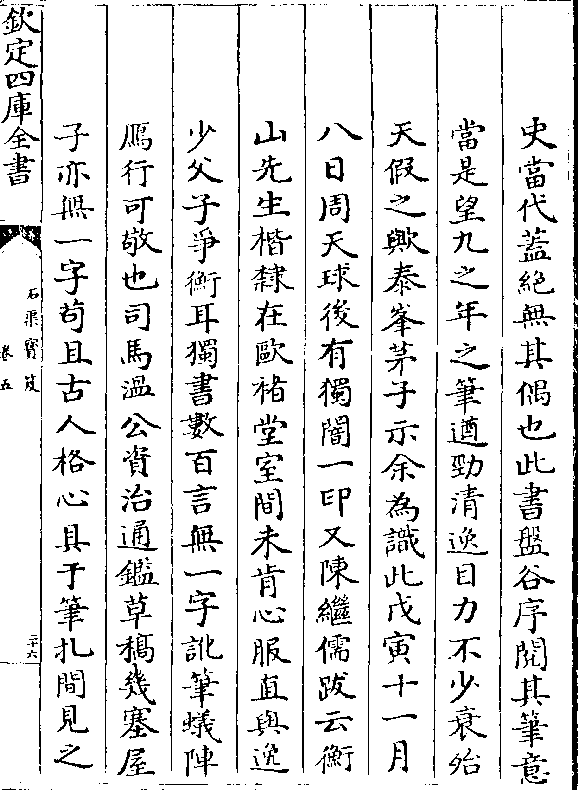 史當代蓋絕無其偶也此書盤谷序閱其筆意
當是望九之年之筆遒勁清逸目力不少衰殆
天假之歟泰峯茅子示余為識此戊寅十一月
八日周天球後有獨闇一印又陳繼儒跋云衡
山先生楷隸在歐褚堂室間未肯心服直與逸
少父子爭衡耳獨書數百言無一字訛筆蟻陣
鴈行可敬也司馬溫公資治通鑑草稿幾塞屋
子亦無一字苟且古人格心具于筆札間見之
欽定四庫全書
石渠寶笈
卷五
三十六